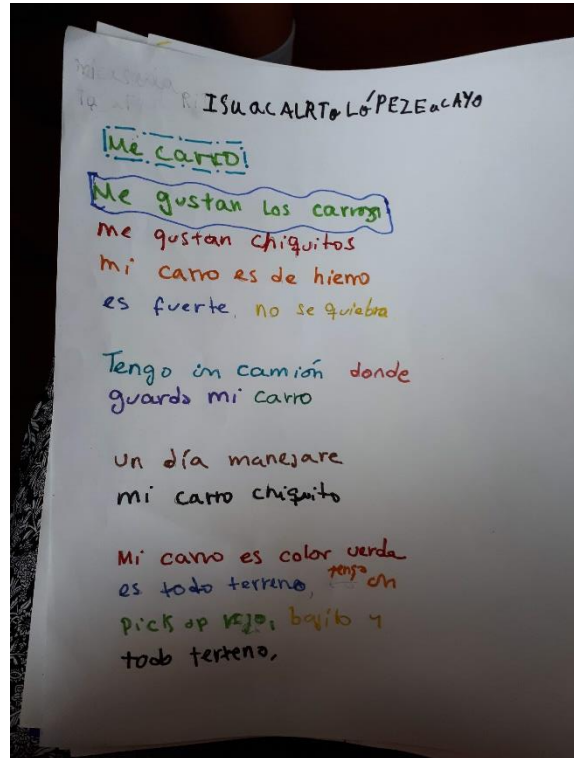 ISUACALRTO LÓPEZEACAYO
Me carro
Me gustan los carros
me gustan chiquitos
mi carro es de hierro
es fuerte, no se quiebra
Tengo un camión donde
guardo mi carro
un día manejare
mi carro chiquito
Mi carro es color verde
es todo terreno, tengo un
pick op rojo, bajito y
todo terreno,